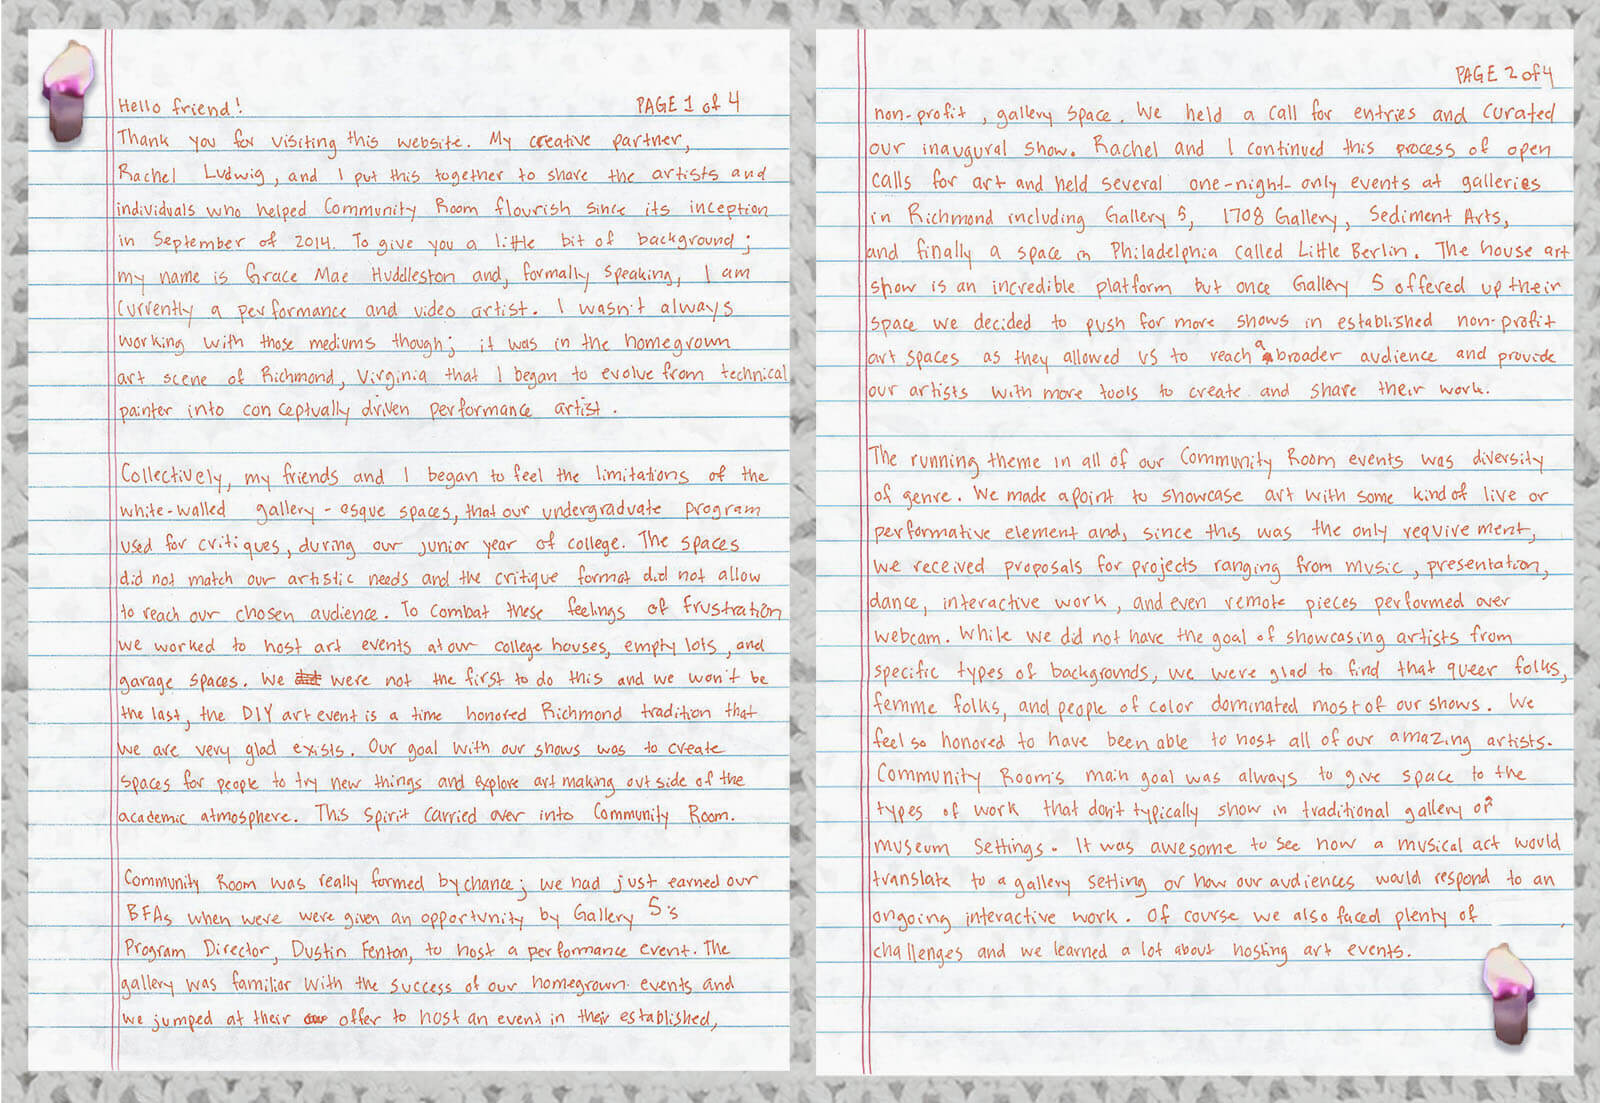 Hello friend!
PAGE 1 of 4
Thank you for visiting this website. My creative partner,
Rachel Ludwig, and I put this together to share the artists and
individuals who helped Community Room flourish since its inception
in September of 2014. To give you a little bit of background;
my name is Grace Mae Huddleston and, formally speaking, I am
currently a performance and video artist. I wasn't always
working with those mediums though; it was in the homegrown
art scene of Richmond, Virginia that I began to evolve from technical
painter into conceptually driven performance artist.
Collectively, my friends and I began to feel the limitations of the
white-walled gallery-esque spaces, that our undergraduate program
used for critiques, during our junior year of college. The spaces
did not match our artistic needs and the critique format did not allow
to reach our chosen audience. To combat these feelings of frustration
we worked to host art events at our college houses, empty lots, and
garage spaces. We were not the first to do this and we won't be
the last, the DIY art event is a time honored Richmond tradition that
we are very glad exists. Our goal with our shows was to create
spaces for people to try new things and explore art making outside of the
academic atmosphere. This spirit carried over into Community Room.
Community Room was really formed by chance; we had just earned our
BFAs when were were given an opportunity by Gallery 5's
Program Director, Dustin Fenton, to host a performance event. The
gallery was familiar with the success of our homegrown events and
we jumped at their offer to host an event in their established,
PAGE 2 of 4
non-profit, gallery space. We held a call for entries and curated
our inaugural show. Rachel and I continued this process of open
calls for art and held several one-night-only events at galleries
in Richmond including Gallery 5, 1708 Gallery, Sediment Arts,
and finally a space in Philadelphia called Little Berlin. The house art
show is an incredible platform but once Gallery 5 offered up their
space we decided to push for more shows in established non-profit
art spaces as they allowed us to reach a broader audience and provide
our artists with more tools to create and share their work.
The running theme in all of our Community Room events was diversity
of genre. We made a point to showcase art with some kind of live or
performative element and, since this was the only requirement,
we received proposals for projects ranging from music, presentation,
dance, interactive work, and even remote pieces performed over
webcam. While we did not have the goal of showcasing artists from
specific types of backgrounds, we were glad to find that queer folks,
femme folks, and people of color dominated most of our shows. We
feel so honored to have been able to host all of our amazing artists.
Community Room's main goal was always to give space to the
types of work that don't typically show in traditional gallery or
museum settings. It was awesome to see how a musical act would
translate to a gallery setting or how our audiences would respond to an
ongoing interactive work. Of course we also faced plenty of
challenges and we learned a lot about hosting art events.